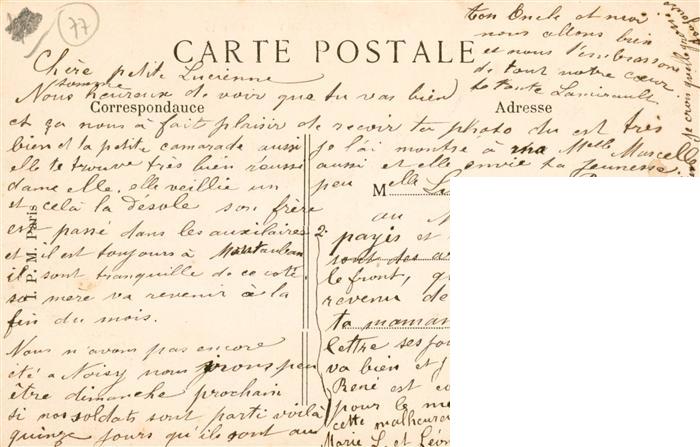 77
CARTE POSTALE
Correspondance
Adresse
I. P. M. Paris
Chère petite Lucienne
Nous sommes heureux de voir que tu vas bien
et ça nous à fait plaisir de recevoir ta photo du est très
bien et ta petite camarade aussi
elle te trouve très bien réussi
dame elle, elle veillie un
et celà la désole son frère
est passé dans les auxilaire
et il est toujours à Montauban
il sont tranquille de ce coté
sa mère va revenir à la
fin du mois.
Nous n'avons pas encore
été a Noisy nous irons peu
être dimanche prochain
si nos soldats sont parti voilà
quinze jours qu'ils sont au
je l'ai montré à ma Melle Marcelle
aussi et elle envie ta jeunesse.
peu
Melle
au
2.
payis et
sont des
le front,
revenu de
ta maman
lettre ses
va bien et
René est
pour le
cette malheureu
Marie L. et Léon
ton Oncle et moi
nous allons bien
et nous t'embrassons
de tout notre cœur
ta tante Lamirault